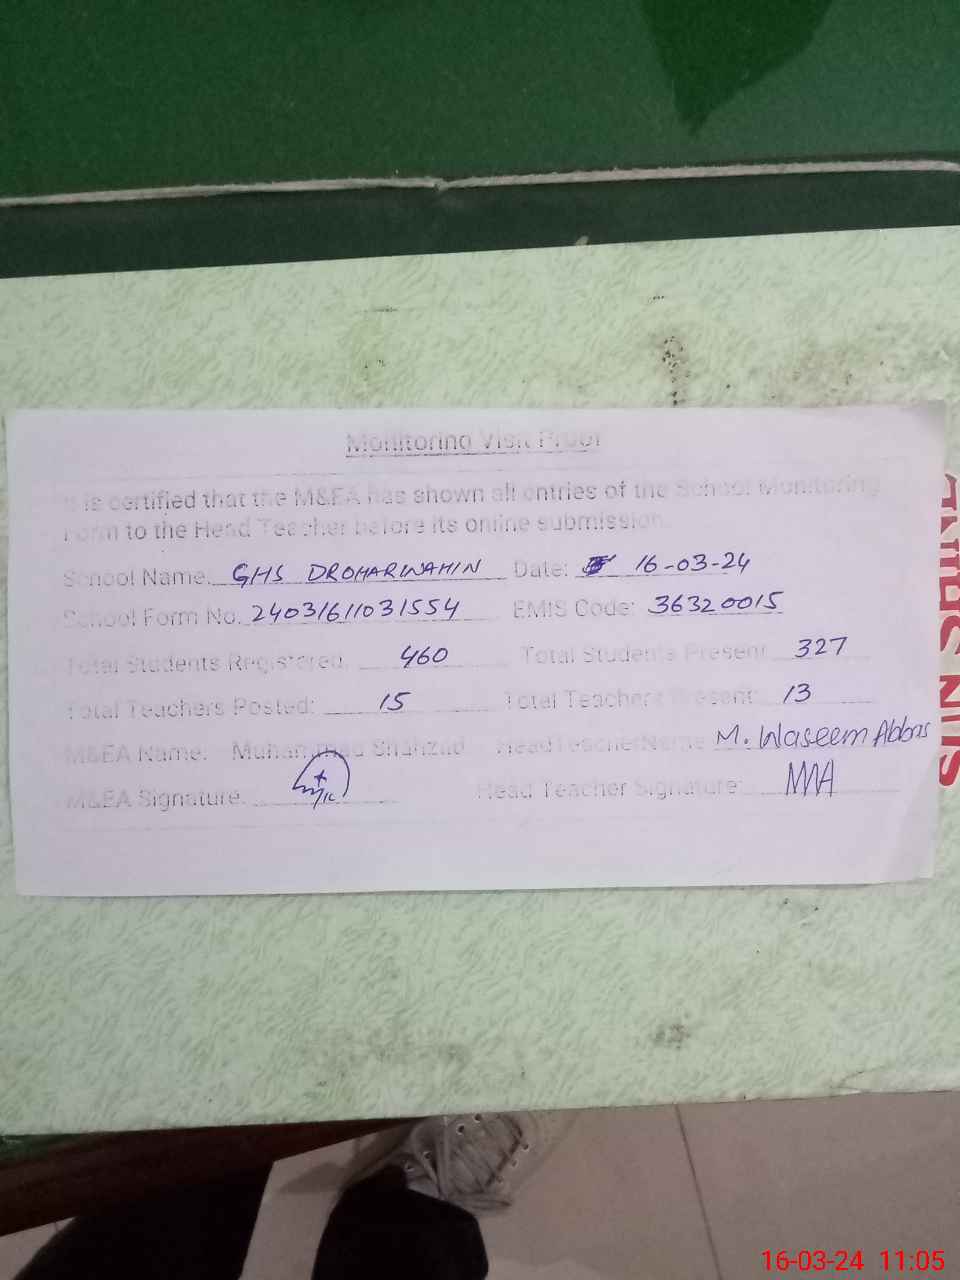 Monitoring Visit Proof
It is certified that the M&EA has shown all entries of the School Monitoring
Form to the Head Teacher before its online submission.
School Name: GHS DROHARWAHIN Date: 16-03-24
School Form No. 24031611031554 EMIS Code: 36320015
Total Students Registered: 460 Total Students Present 327
Total Teachers Posted: 15 Total Teachers Present: 13
M&EA Name: Muhammad Shahzad HeadTeacherName M. Waseem Abbas
M&EA Signature: Head Teacher Signature: MWA
16-03-24 11:05